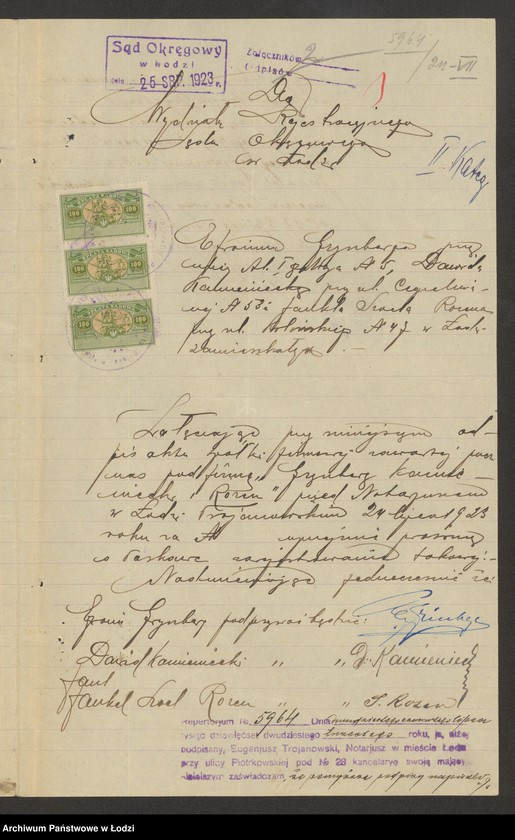 Sąd Okręgowy
w Łodzi
25 SRP. 1923 r.
Załączników 2
Odpisów
5964
24-VII
Do
Wydziału Rejestracyjnego
Sądu Okręgowego
w Łodzi
II Kateg
100 100
100 100
100 100
Efroima Grynberga przy
ulicy Al. I Maja № 5, Dawida
Kamienieckiego przy ul. Cegielnia-
nej № 58 i Jankla Srula Rozena
przy ul. № 47 w Łodzi
zamieszkałych. -
Załączając przy niniejszym od-
pis aktu spółki firmowej zawartej przez
nas pod firmą "Grynberg Kamie-
niecki i Rozen" przed Notarjuszem
w Łodzi Trojanowskim 24 lipca 1923
roku za № uprzejmie prosimy
o łaskawe zarejestrowanie takowej.
Nadmieniając jednocześnie że
Efroim Grynberg podpisywać będzie:
Dawid Kamieniecki " " D. Kamieniecki
Jankel Srul Rozen " " S. Rozen
Repertorjum Nr. 5964 Dnia dwudziestego czwartego lipca
tysiąc dziewięćset dwudziestego trzeciego roku, ja, niżej
podpisany, Eugenjusz Trojanowski, Notarjusz w mieście Łodzi
przy ulicy Piotrkowskiej pod № 28 kancelarję swoją mający
niniejszym zaświadczam, że powyższe podpisy
Archiwum Państwowe w Łodzi